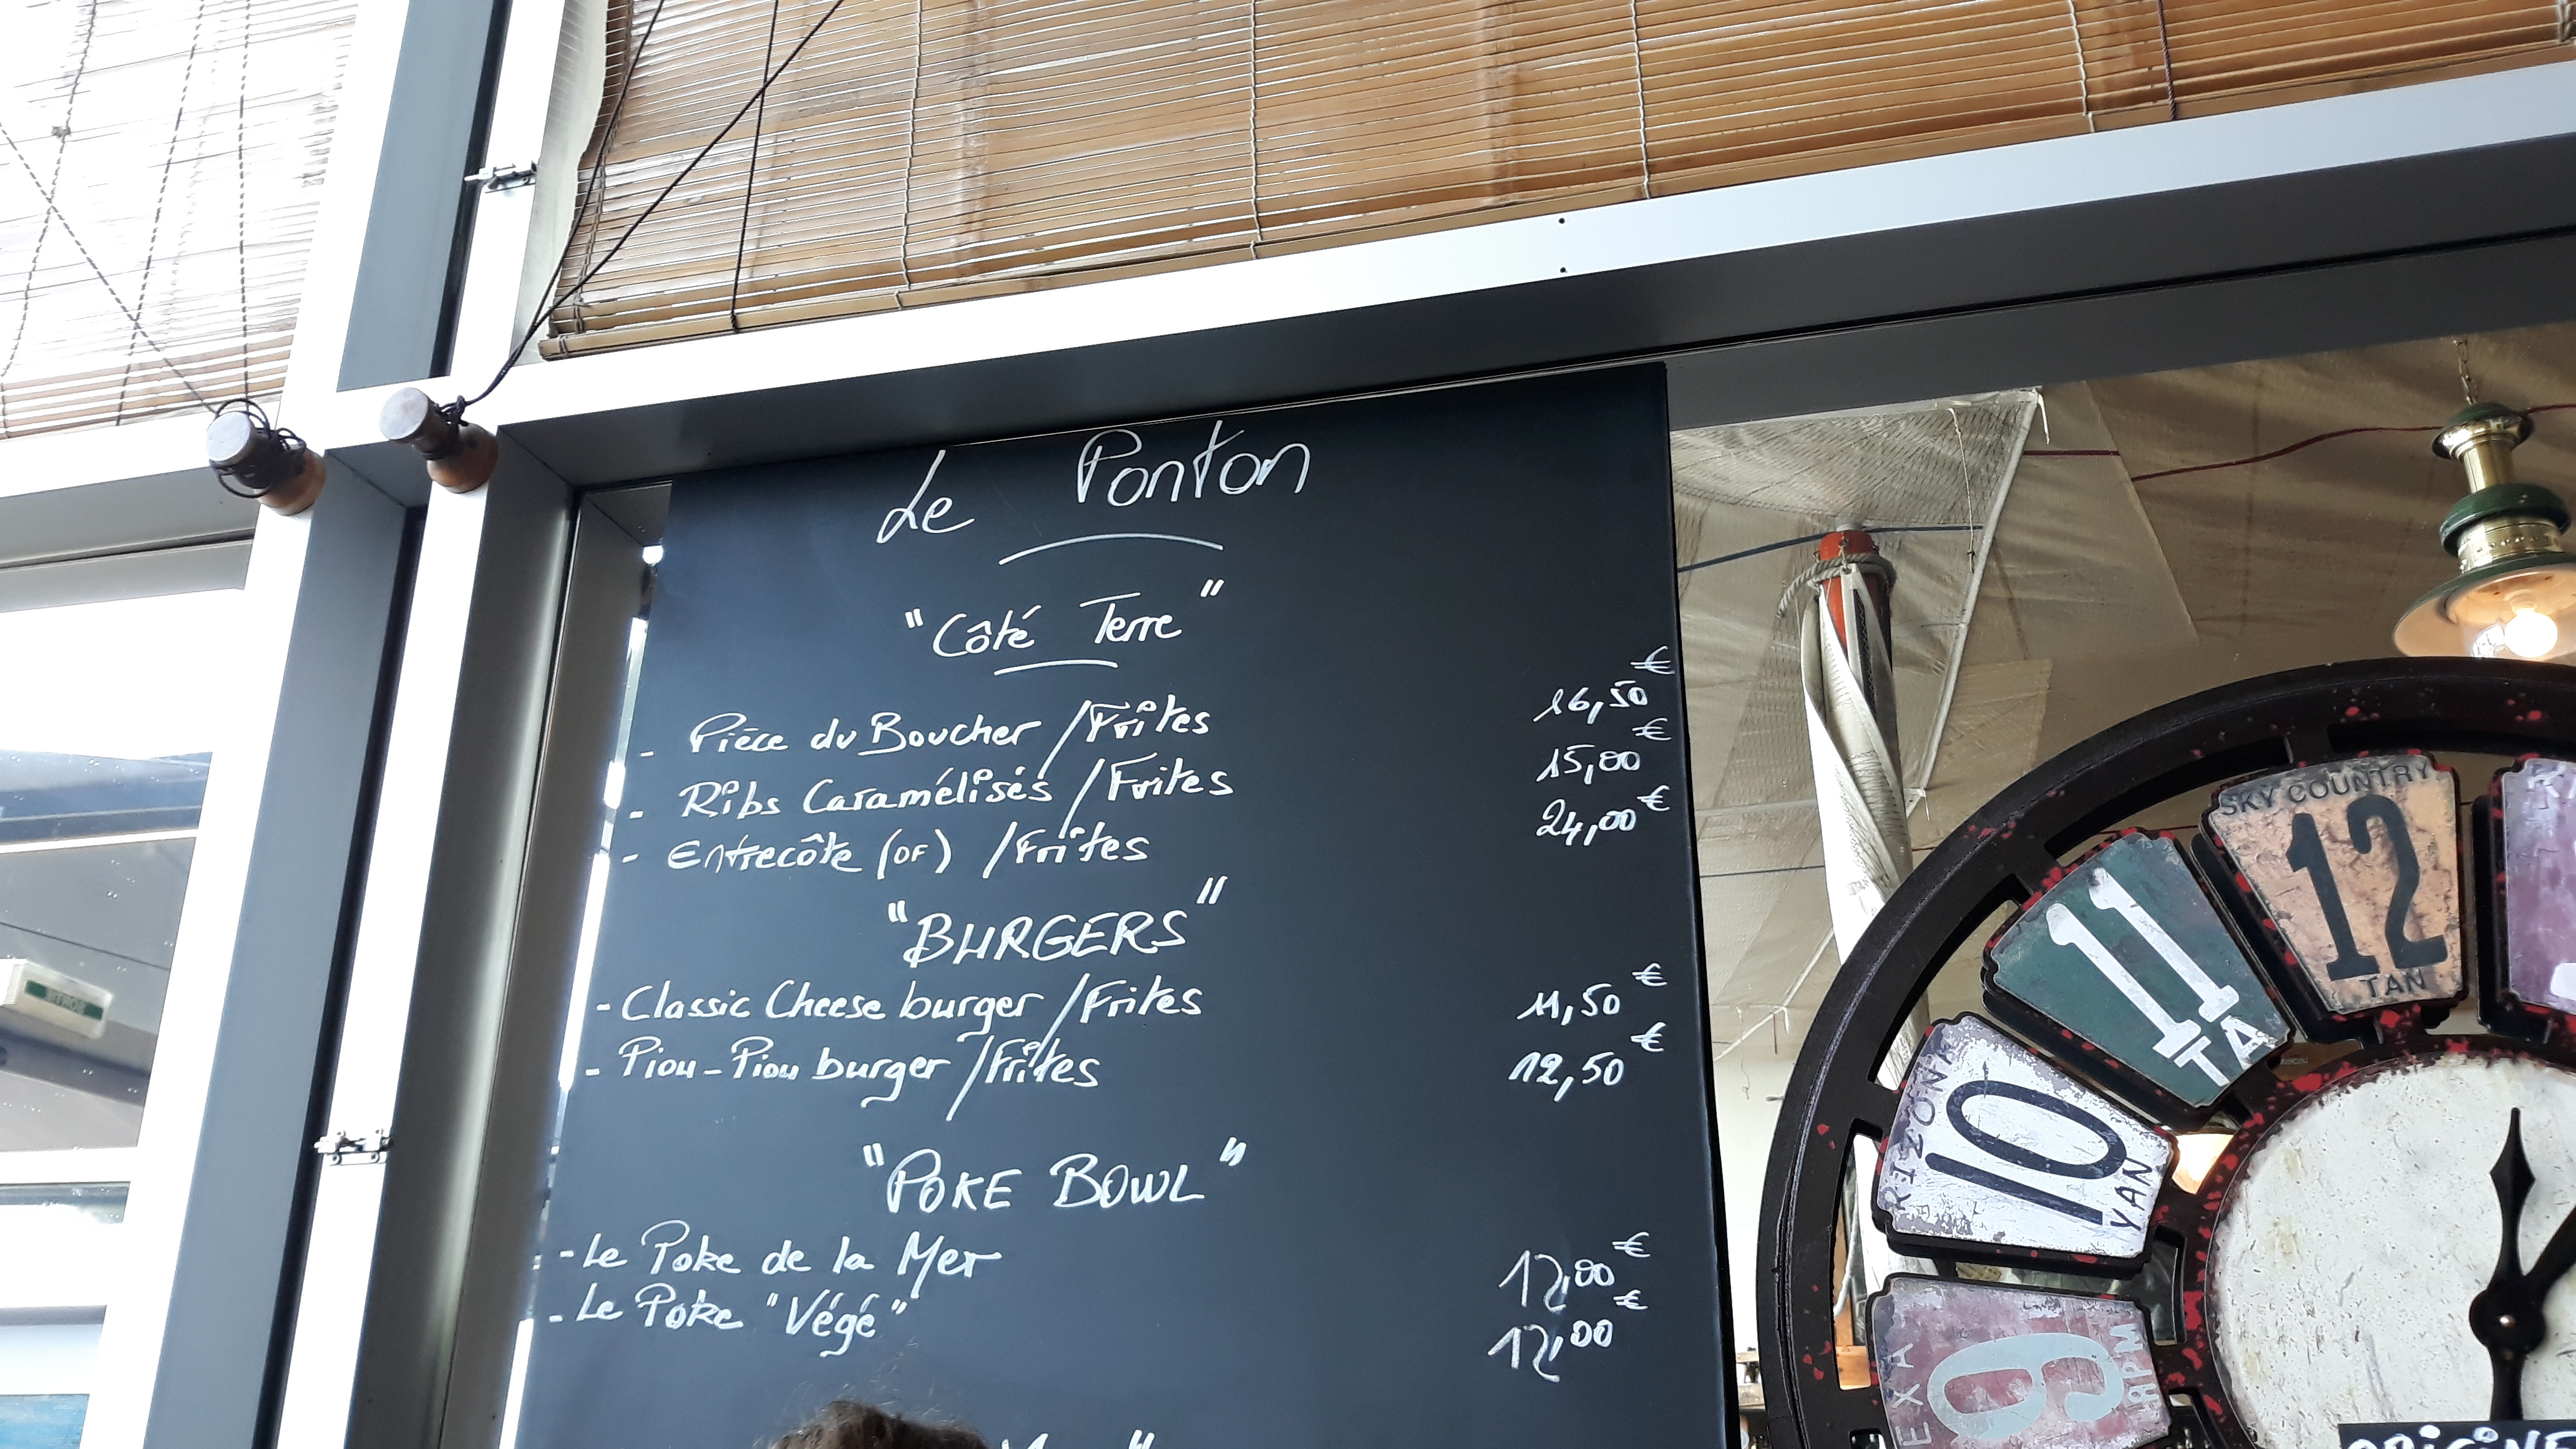 Le Ponton
"Côté Terre"
- Pièce du Boucher / Frites 16,50€
- Ribs Caramélisés / Frites 15,00€
- Entrecôte (OF) / Frites 24,00€
"BURGERS"
- Classic Cheese burger / Frites 11,50€
- Piou-Piou burger / Frites 12,50€
"POKE BOWL"
- Le Poke de la Mer 12,00€
- Le Poke "Végé" 12,00€
SKY COUNTRY
12
TAN
11
TA
RIZONA
10
YAN
EXA
9